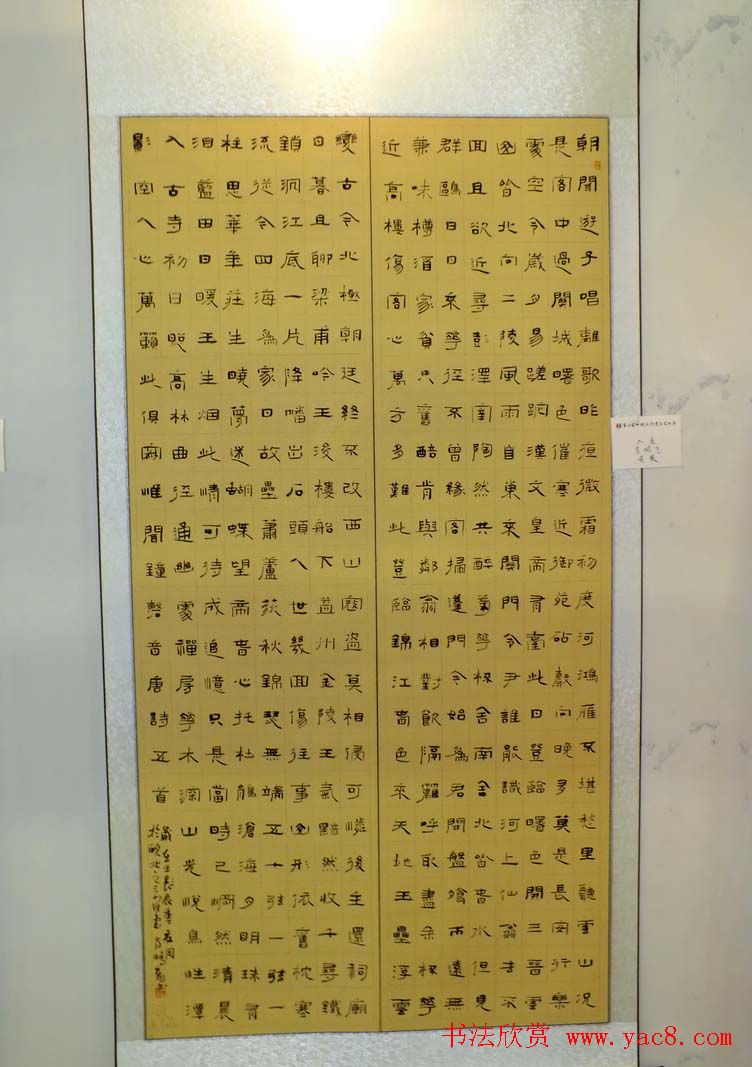 朝聞遊子唱離歌昨夜微霜初度河鴻雁不堪愁里聽雲山況
是客中過關城曙色催寒近御苑砧聲向晚多莫是長安行樂
處空令歲月易蹉跎漢文皇帝有臺此日登臨曙色開三晉雲
山皆北向二陵風雨自東來關門令尹誰能識河上仙翁去不
回且欲近尋彭澤宰陶然共醉菊花杯舍南舍北皆春水但見
群鷗日日來花徑不曾緣客掃蓬門今始為君開盤飧市遠無
兼味樽酒家貧只舊醅肯與鄰翁相對飲隔籬呼取盡余杯花
近高樓傷客心萬方多難此登臨錦江春色來天地玉壘浮雲
變古今北極朝廷終不改西山寇盜莫相侵可憐後主還祠廟
日暮且聊梁甫吟王濬樓船下益州金陵王氣黯然收千尋鐵
鎖沉江底一片降幡出石頭人世幾回傷往事山形依舊枕寒
流從今四海為家日故壘蕭蘆荻秋錦瑟無端五十弦一弦一
柱思華年莊生曉夢迷蝴蝶望帝春心托杜鵑滄海月明珠有
淚藍田日暖玉生煙此情可待成追憶只是當時已惘然清晨
入古寺初日照高林曲徑通幽處禪房花木深山光悅鳥性潭
影空人心萬籟此俱寂惟聞鐘磬音唐詩五首
书法欣赏 www.yac8.com